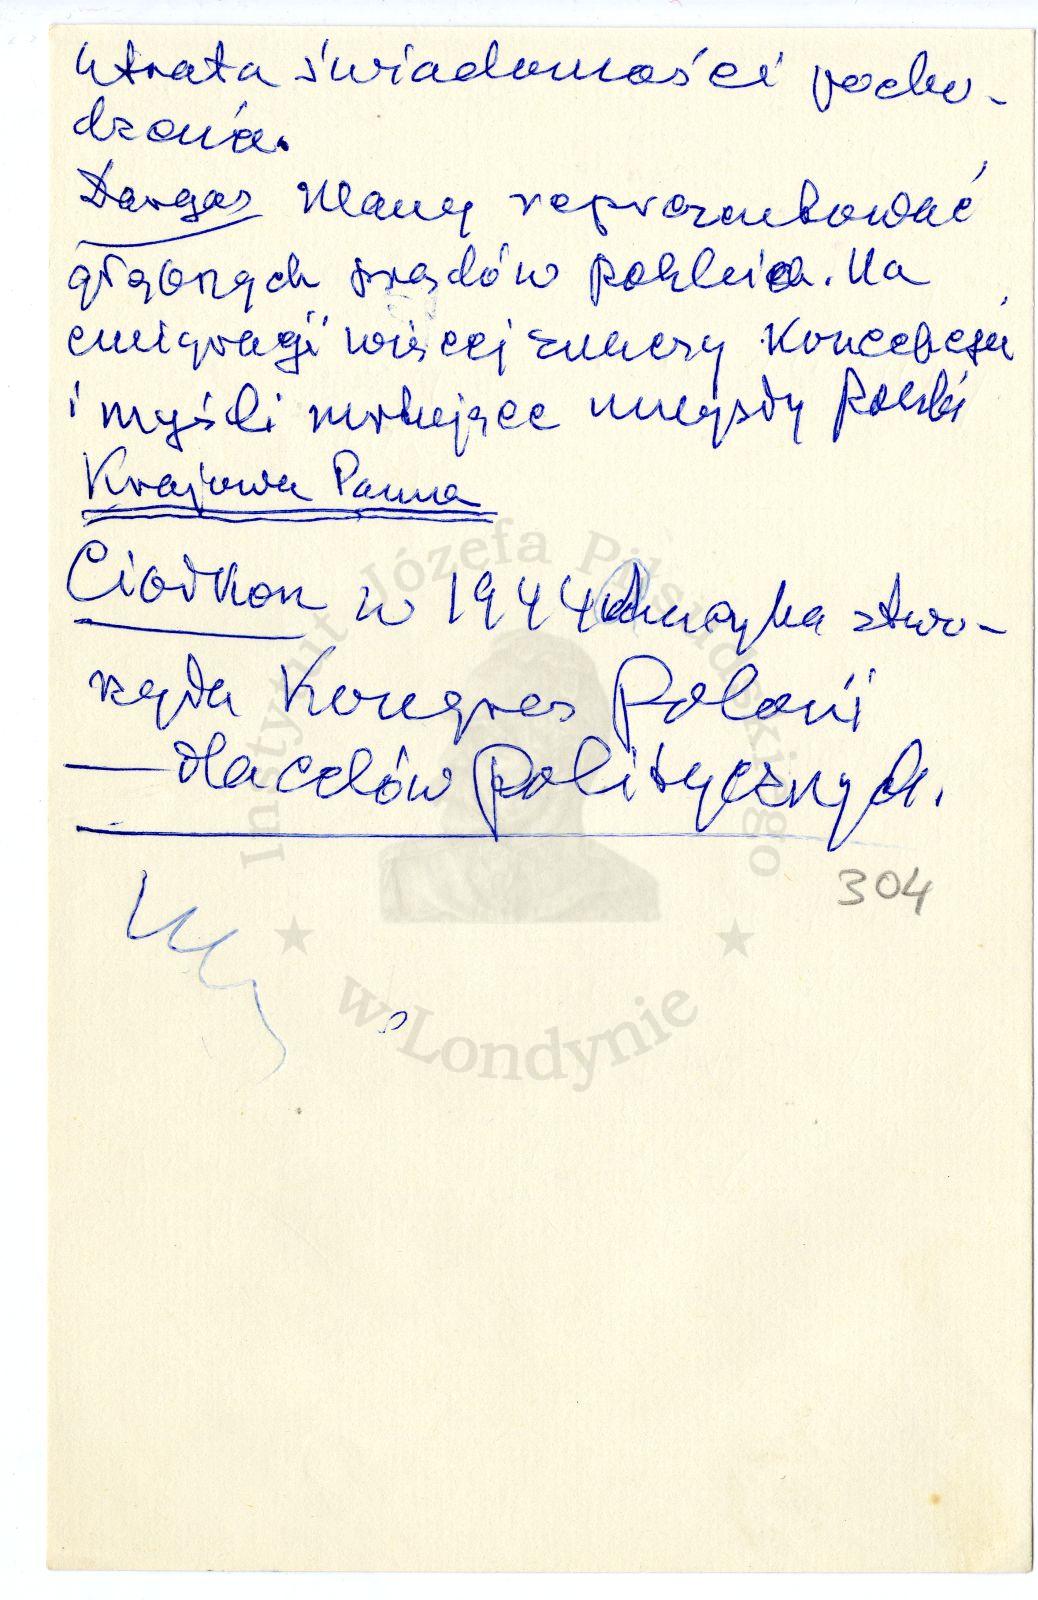 utrata świadomości pocho-
dzenia.
Dargas Mamy reprezentować
głębnych prądów polskich. Na
emigracji więcej znaczy Koncepcja
i myśli nurtujące umysły Polski
Krajowa Panna
Ciołkosz w 1944 Ameryka stwo-
rzyła Kongres Polonii
— dla celów politycznych.
304
Instytut Józefa Piłsudskiego
w Londynie